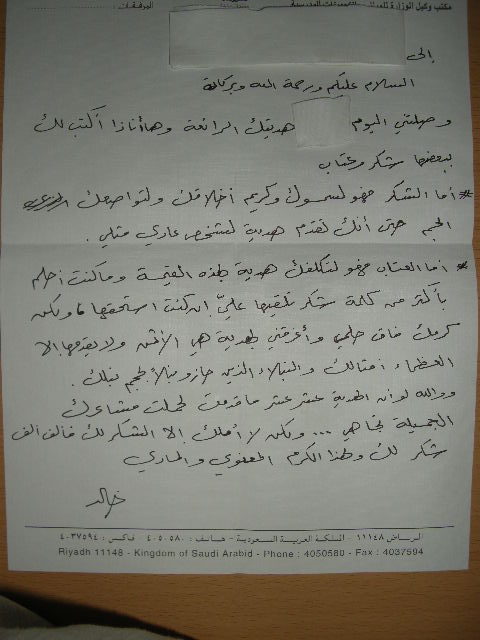 مكتب وكيل الوزارة
المرفقات :
إلى
السلام عليكم ورحمة الله وبركاته
وصلتني اليوم هديتك الرائعة وها أنا ذا أكتب لك
ببعضها شكر وعتاب
* أما الشكر فهو لسموك وكريم أخلاقك ولتواضعك
الجم حتى أنك تقدم هدية لشخص عادي مثلي .
* أما العتاب فهو لتكلفك هدية بهذه القيمة وما كنت أحلم
بأكثر من كلمة شكر تلقيها عليّ إن كنت استحقها ، ولكن
كرمك فاق حلمي وأغرقتني بهدية هي الأثمن ولا يقدمها إلا
العظماء أمثالك والنبلاء الذين جازو بنبلك .
ووالله لو أن الهدية عشر عشر ما قدمت لحملت مشاعرك
الجميلة تجاهي ... ولكن لا أملك إلا الشكر لك فألف ألف
شكر لك ولهذا الكرم المعنوي والمادي
خالد
الرياض ١١١٤٨ - المملكة العربية السعودية - هاتف : ٤٠٥٠٥٨٠ - فاكس : ٤٠٣٧٥٩٤
Riyadh 11148 - Kingdom of Saudi Arabid - Phone : 4050580 - Fax : 4037594